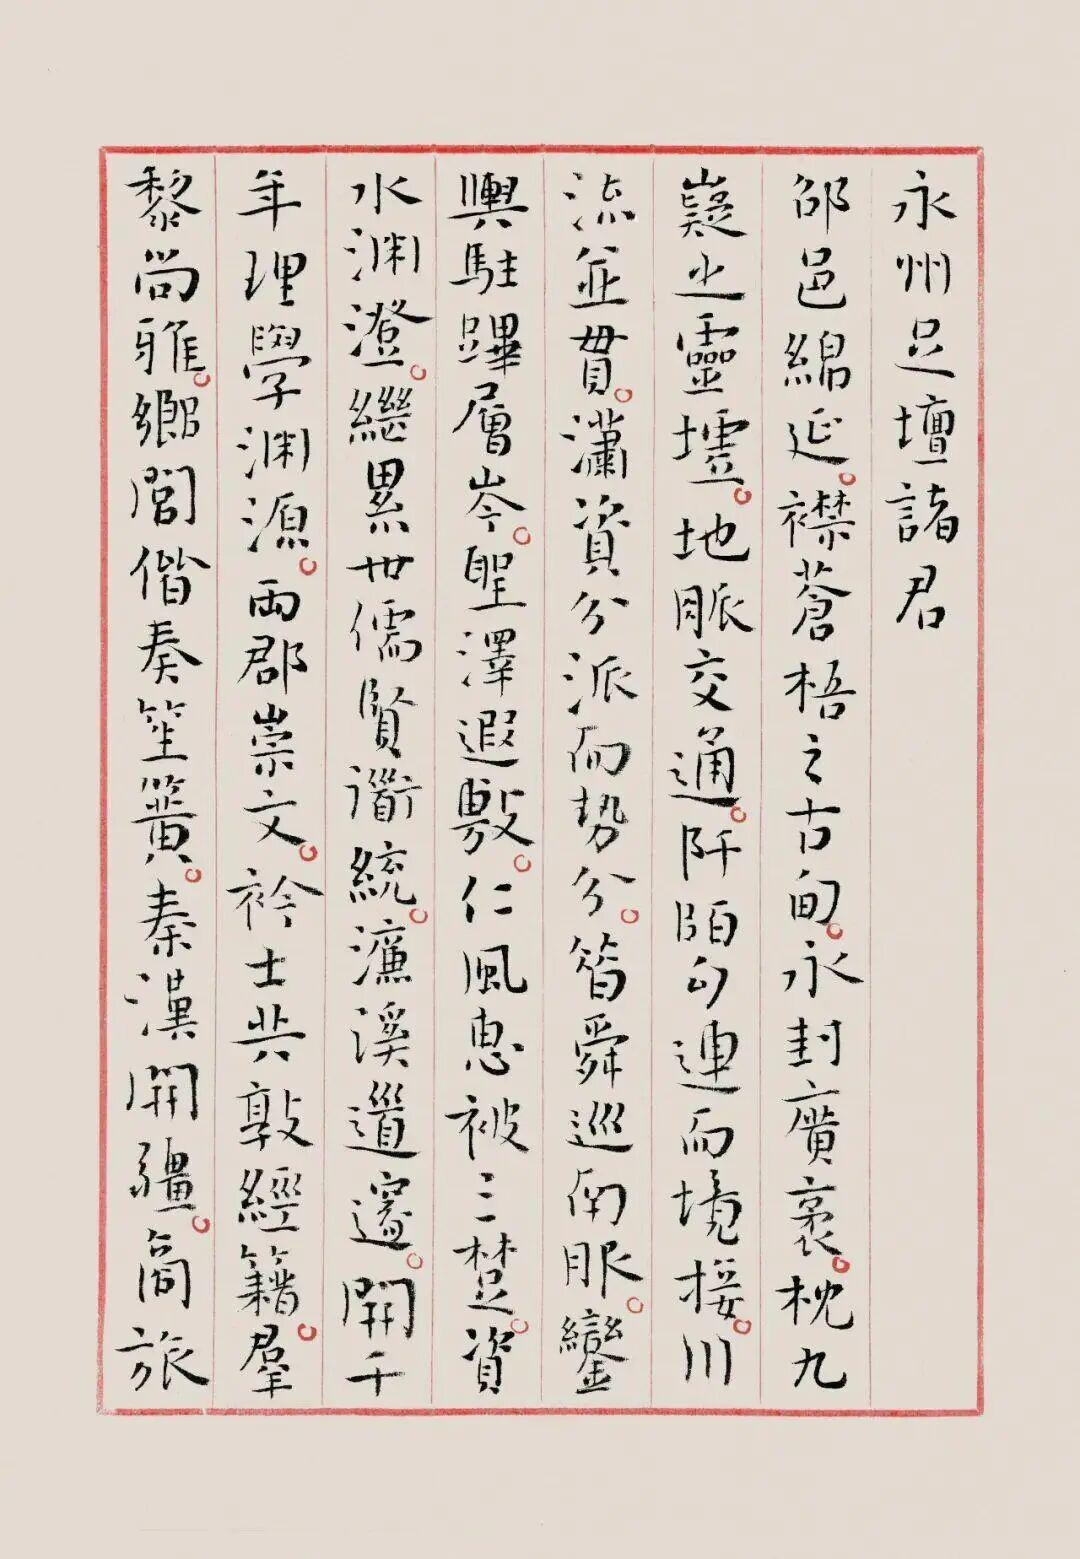 永州足壇諸君
邵邑綿延。襟蒼梧之古甸。永封廣袤。枕九
嶷之靈墟。地脈交通。阡陌勾連而境接。川
流並貫。瀟資分派而勢分。昔舜巡南服。鑾
輿駐蹕層岑。聖澤遐敷。仁風惠被三楚。資
水淵澄。繼累世儒賢道統。濂溪道邃。開千
年理學淵源。兩郡崇文。衿士共敦經籍。羣
黎尚雅。鄉閭偕奏笙簧。秦漢開疆。商旅